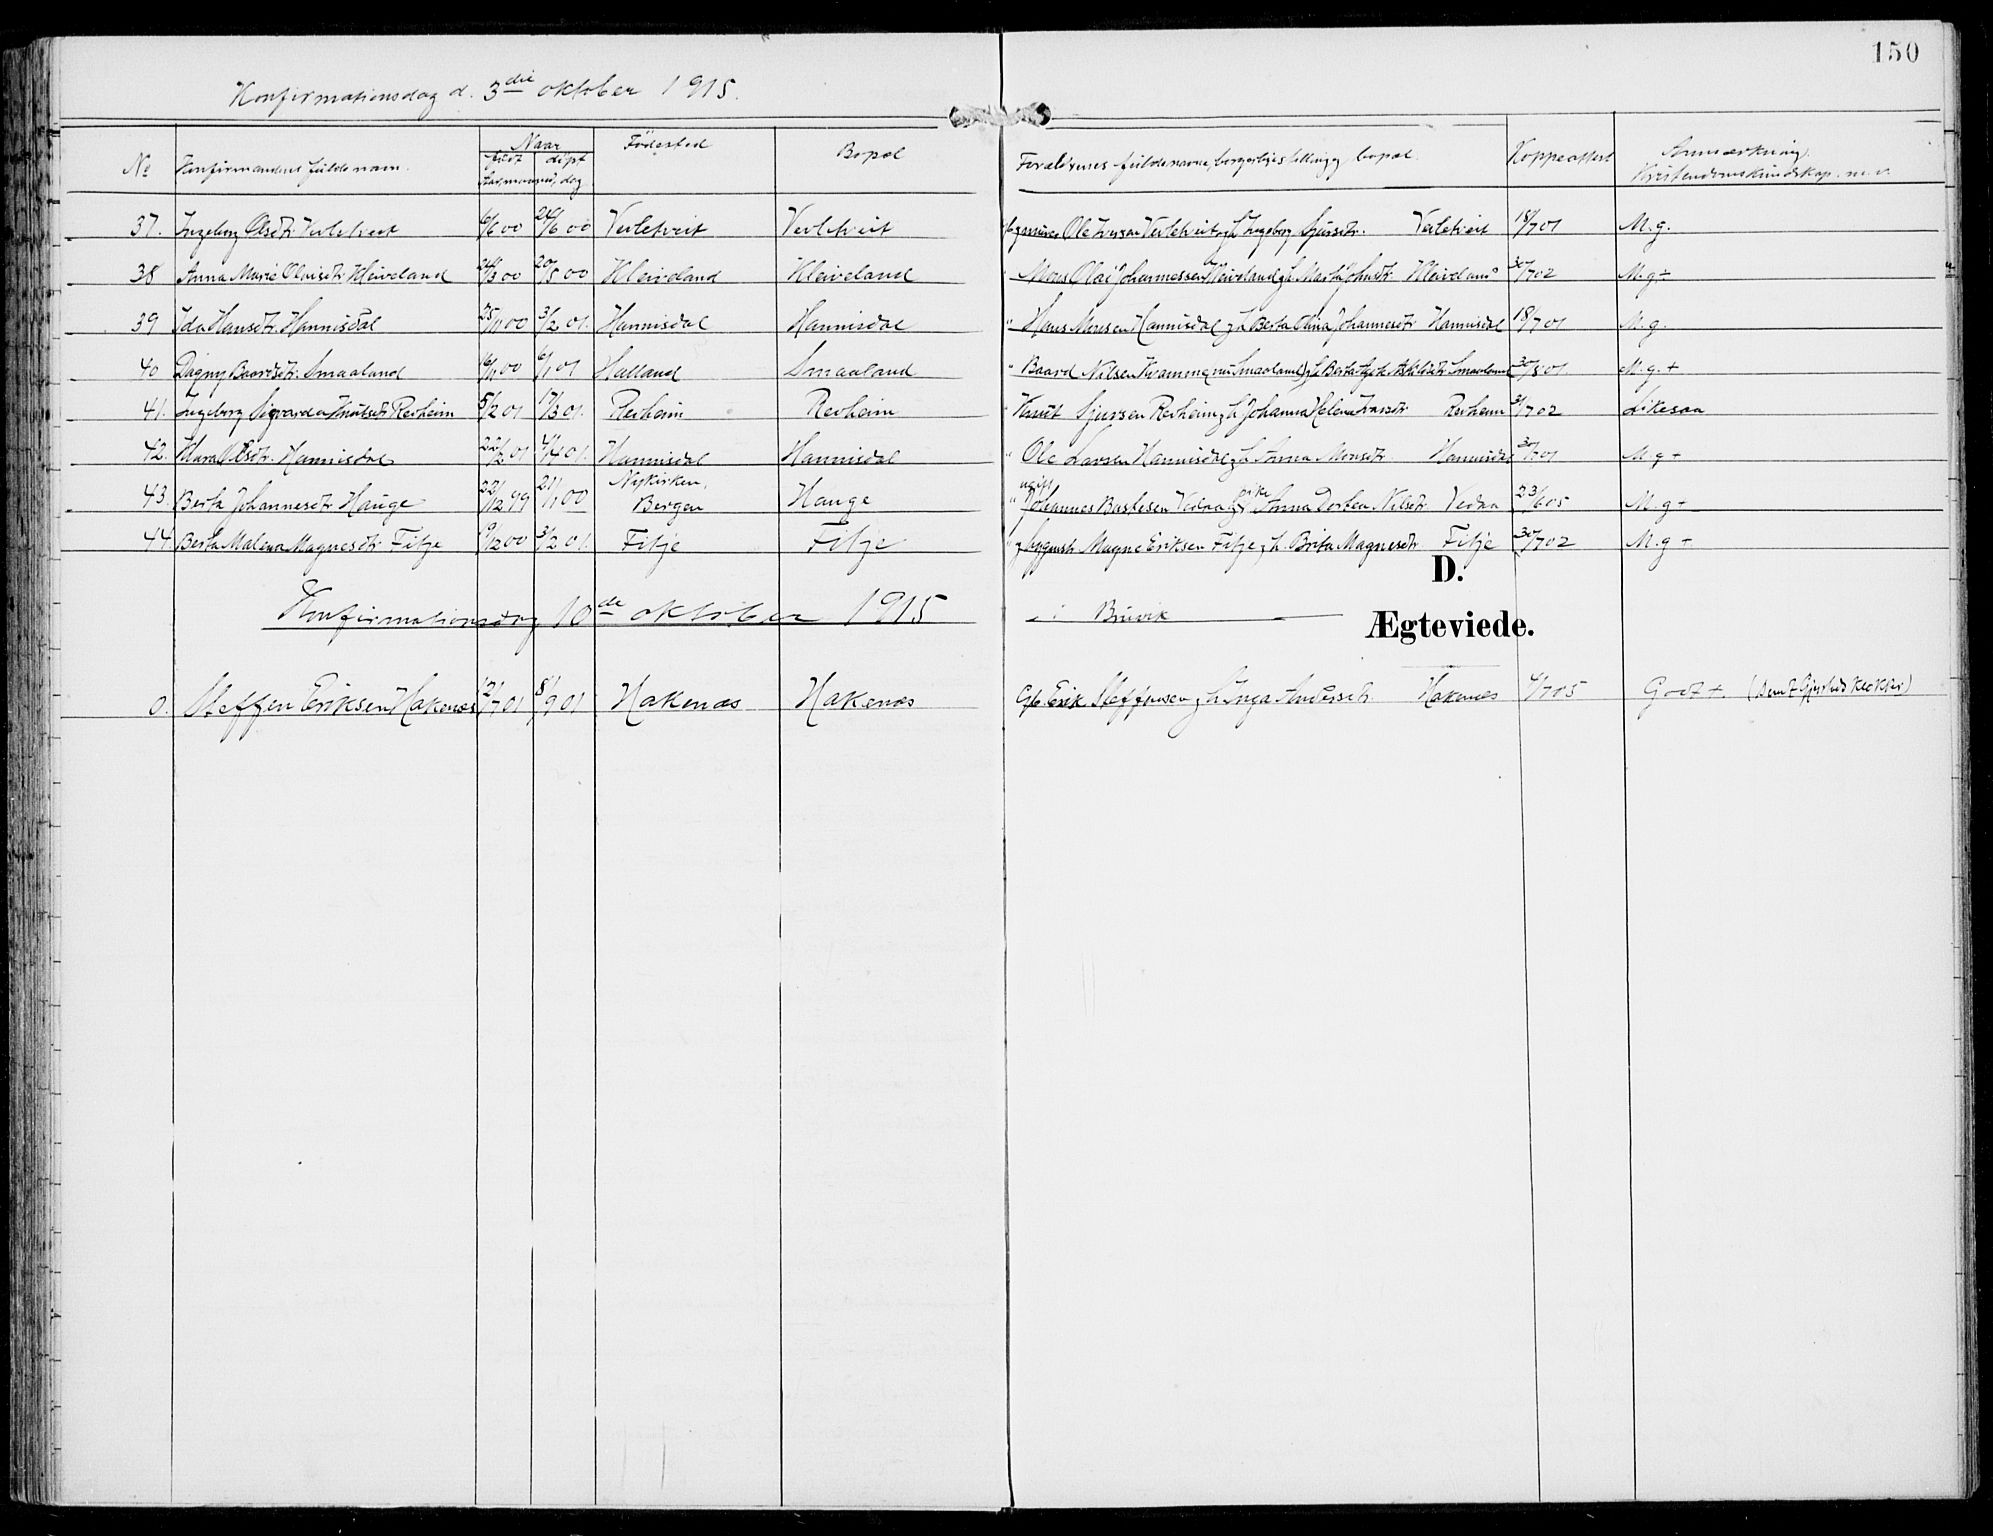 150
Konfirmationsdag d. 3die oktober 1915.
No Konfirmandens fulde navn. Naar født døpt Aar, maaned, dag Fødested Bopæl Forældrenes fulde navne, borgerlige stilling og bopæl. Koppeattest Anmærkning. Kristendomskundskap. m. v.
37. Ingeborg Olsdtr. Verletveit 6/6 00 24/6 00 Verletveit Verletveit Ole Iversen Verletveit og h. Ingeborg Sjursdtr. Verletveit 18/7 01 M. g.
38 Anna Marie Olaisdtr. Kleiveland 24/3 00 20/5 00 Kleiveland Kleiveland " Mons Olai Johannessen Kleiveland og h. Marta Johnsdtr. Kleiveland 30/7 02 M. g. +
39 Ida Hansdtr. Hannisdal 25/11 00 3/2 01. Hannisdal Hannisdal " Hans Monsen Hannisdal og h. Berta Olina Johannesdtr Hannisdal 18/7 01 M. g.
40 Dagny Baardsdtr. Smaaland 16/11 00 6/1 01 Halland Smaaland " Baard Nilsen Kvamme (nu Smaaland) og h. Berta Smaaland 30/8 01 M. g. +
41. Ingeborg Sigvarda Knutsdtr. Revheim 5/2 01 17/3 01. Revheim Revheim " Knut Sjursen Revheim og h. Johanna Helena Revheim 31/7 02 Likesaa
42. Klara Olsdtr. Hannisdal 22/2 01 4/4 01. Hannisdal Hannisdal " Ole Larsen Hannisdal og h. Anna Monsdtr. Hannisdal 30/7 01 M. g +
43. Berta Johannesdtr. Hauge 22/12 99 21/1 00 Nykirken, Bergen Hauge " ugift Johannes Vedaa og pike Anna Dortea Nilsdtr. Vedaa 23/6 05 M. g +
44. Berta Malena Magnesdtr. Fitje 9/12 00 3/2 01. Fitje Fitje " Magne Eriksen Fitje og h. Brita Magnesdtr Fitje 30/7 02 M. g +
D.
Konfirmationsdag 10de oktober 1915 i Bruvik
Ægteviede.
0. Steffen Eriksen Hakenæs 12/7 01 8/9 01 Hakenæs Hakenæs Gb. Erik Steffensen og h. Inga Andersdtr. Hakenæs 4/7 05 Godt +.